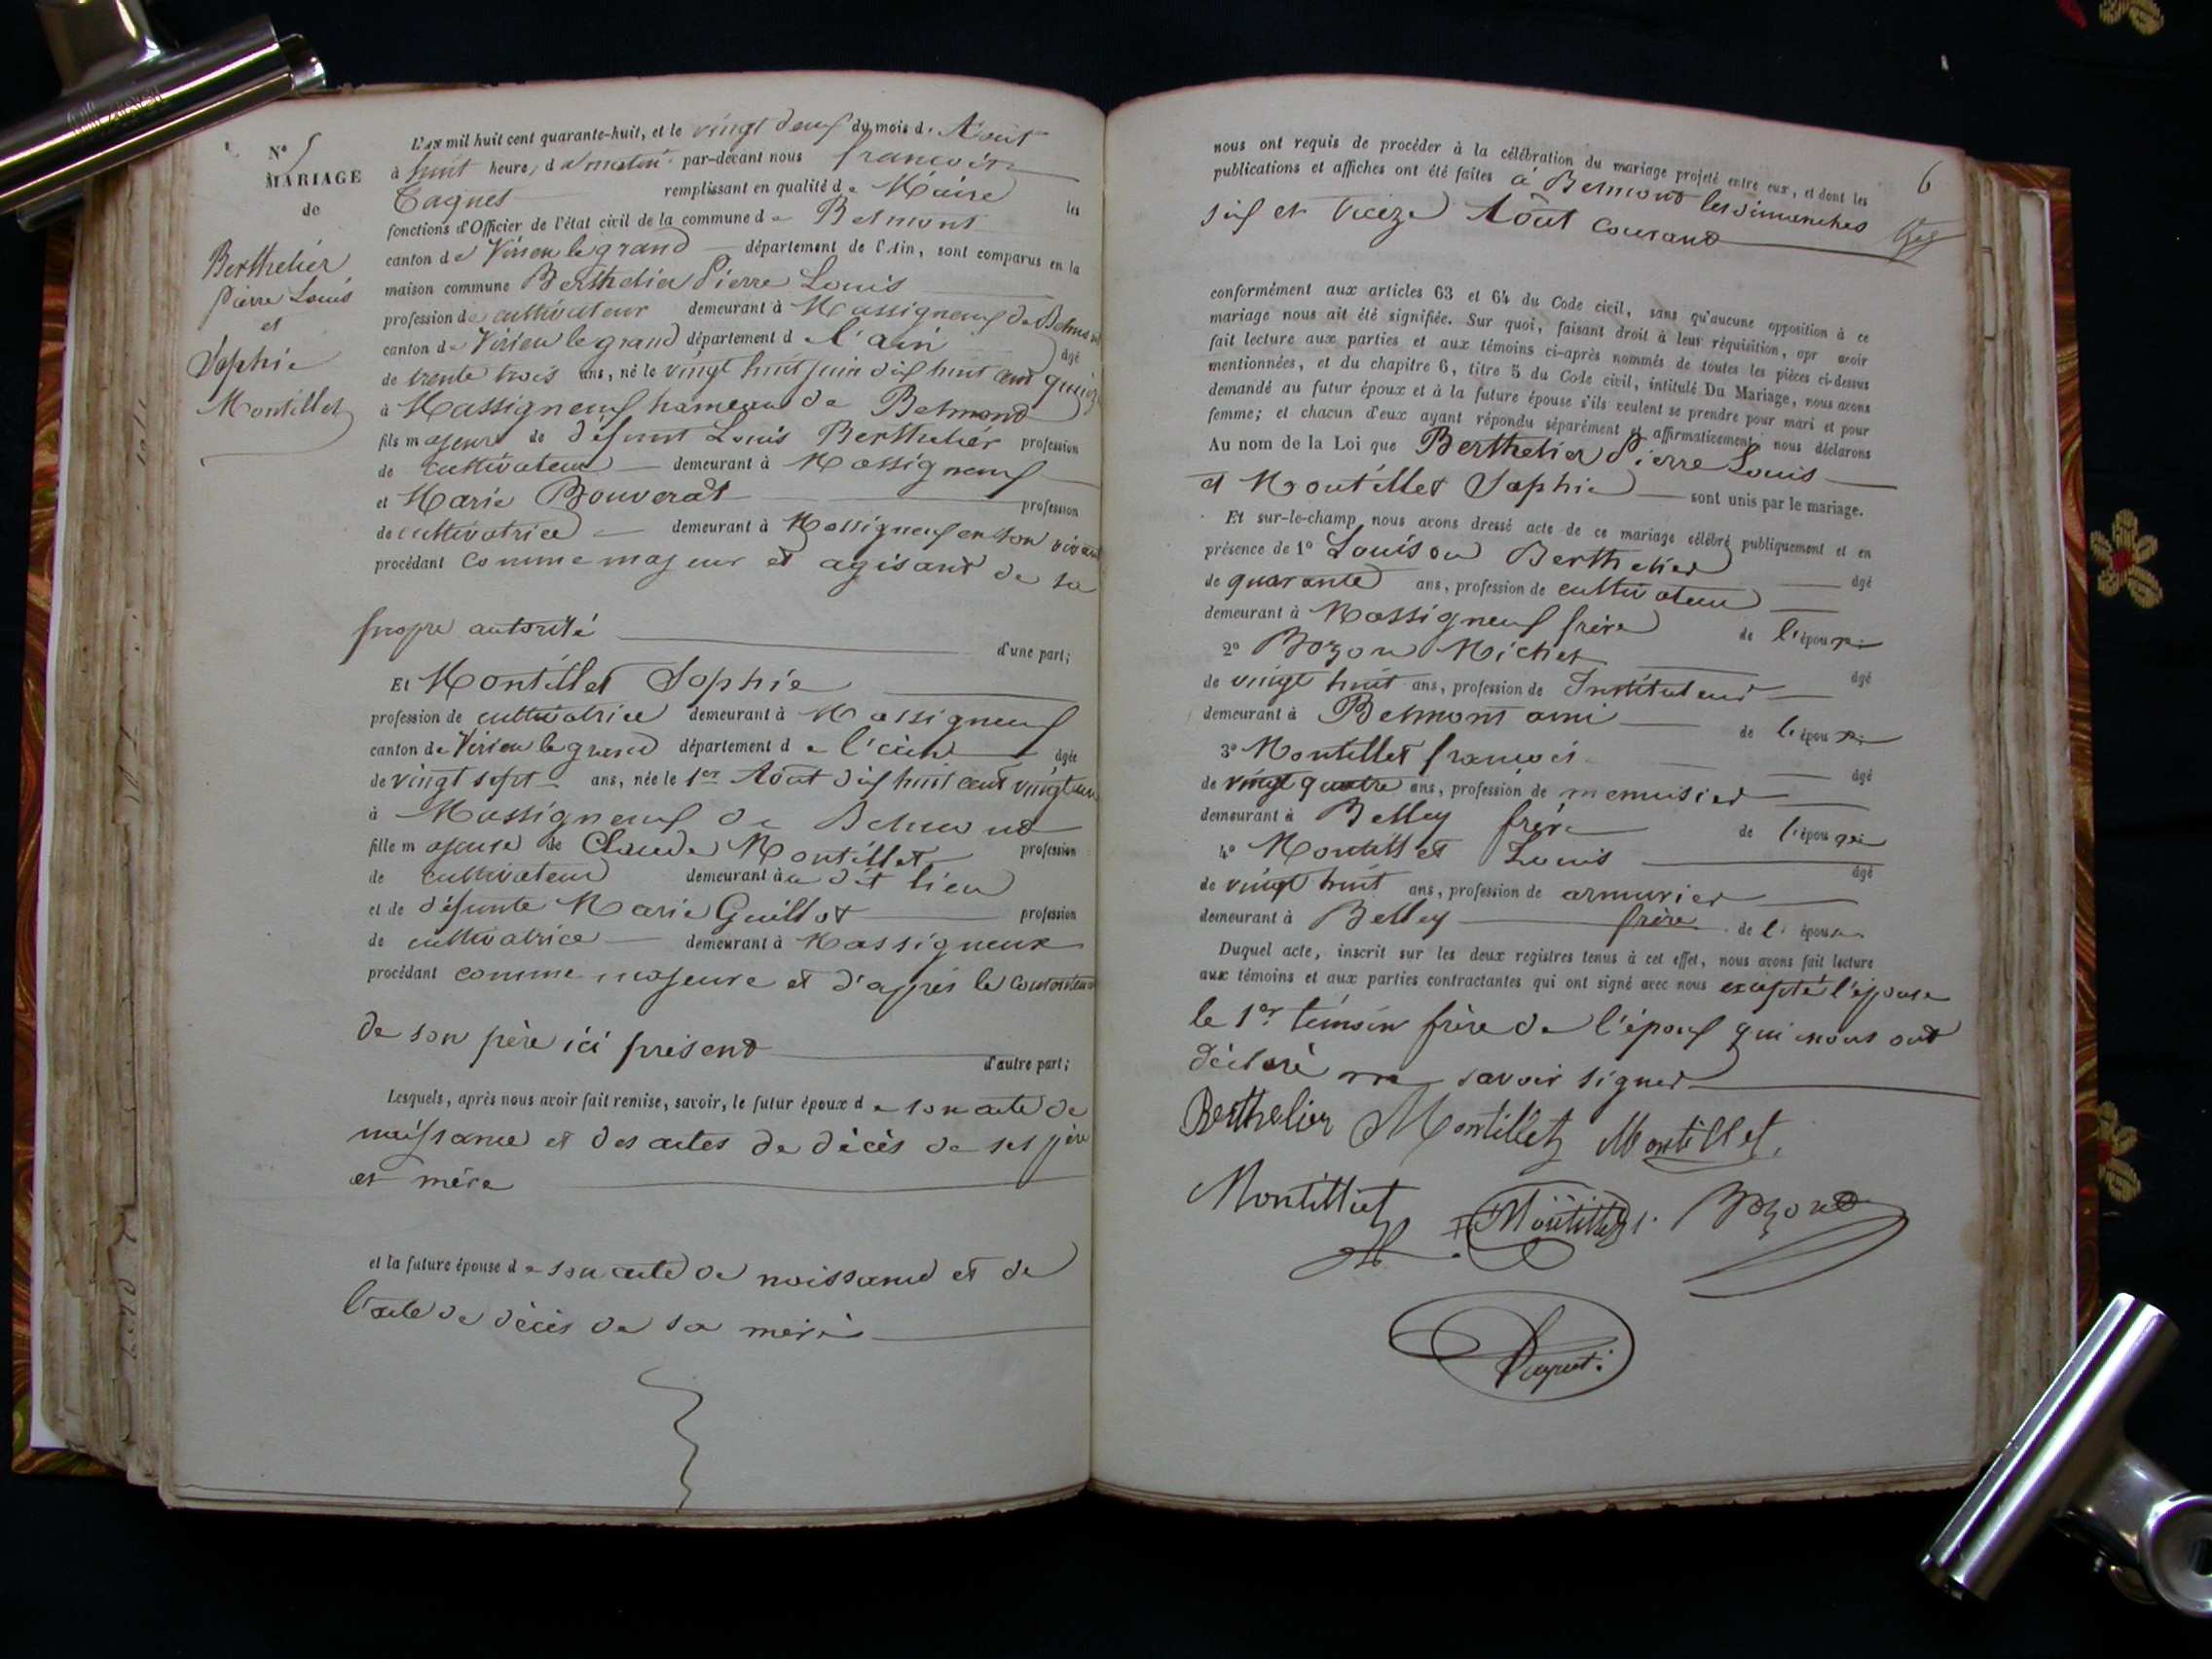 N° 5
MARIAGE
de
Berthelier
Pierre Louis
et
Sophie
Montillet
L'AN mil huit cent quarante-huit, et le vingt neuf du mois d. Août
à huit heures, d u matin par-devant nous francois
remplissant en qualité de Maire les
fonctions d'Officier de l'état civil de la commune de Belmont
canton de Virieu le grand département de l'Ain, sont comparus en la
maison commune Berthelier Pierre Louis
profession de cultivateur demeurant à Massigneux de Belmont
canton de Virieu le grand département d l'ain âgé
de trente trois ans, né le vingt huit juin dix huit cent quinze
à Massigneux hameau de Belmond
fils majeur de défunt Louis Berthelier profession
de cultivateur demeurant à Massigneux
et Marie Bouverat profession
de cultivatrice demeurant à Massigneux en son vivant
procédant comme majeur et agisant de sa
propre autorité
d'une part;
Et Montillet Sophie
profession de cultivatrice demeurant à Massigneux
canton de Virieu le grand département de l'ain âgée
de vingt sept ans, née le 1er Août dix huit cent vingt un
à Massigneux de Belmond
fille majeure de Claude Montillet profession
de cultivateur demeurant à u dit lieu
et de défunte Marie Guillot profession
de cultivatrice demeurant à Massigneux
procédant comme majeure et d'après le consentement
de son père ici présend
d'autre part;
Lesquels, après nous avoir fait remise, savoir, le futur époux d e son acte de
naissance et des actes de décès de ses père
et mère
et la future épouse d e son acte de naissance et de
l'acte de décès de sa mère
6
nous ont requis de procéder à la célébration du mariage projeté entre eux, et dont les
publications et affiches ont été faites à Belmond les dimanches
six et treize Août courand
conformément aux articles 63 et 64 du Code civil, sans qu'aucune opposition à ce
mariage nous ait été signifiée. Sur quoi, faisant droit à leur réquisition, apr avoir
fait lecture aux parties et aux témoins ci-après nommés de toutes les pièces ci-dessus
mentionnées, et du chapitre 6, titre 5 du Code civil, intitulé Du Mariage, nous avons
demandé au futur époux et à la future épouse s'ils veulent se prendre pour mari et pour
femme; et chacun d'eux ayant répondu séparément et affirmativement, nous déclarons
Au nom de la Loi que Berthelier Pierre Louis
et Montillet Sophie sont unis par le mariage.
Et sur-le-champ nous avons dressé acte de ce mariage célébré publiquement et en
présence de 1° Louison Berthelier
de quarante ans, profession de cultivateur âgé
demeurant à Massigneux frère de l'époux
2° Bozon Michel
de vingt huit ans, profession de Instituteur âgé
demeurant à Belmont ami de l'époux
3° Montillet francois
de vingt quatre ans, profession de menuisier âgé
demeurant à Belley frère de l'épouse
4° Montillet Louis
de vingt huit ans, profession de armurier âgé
demeurant à Belley frère de l'épouse
Duquel acte, inscrit sur les deux registres tenus à cet effet, nous avons fait lecture
aux témoins et aux parties contractantes qui ont signé avec nous excepté l'épouse
le 1er témoin frère de l'époux qui nous ont
déclaré ne savoir signer
Berthelier Montillet Montillet
Montilliet Montillet Bozond